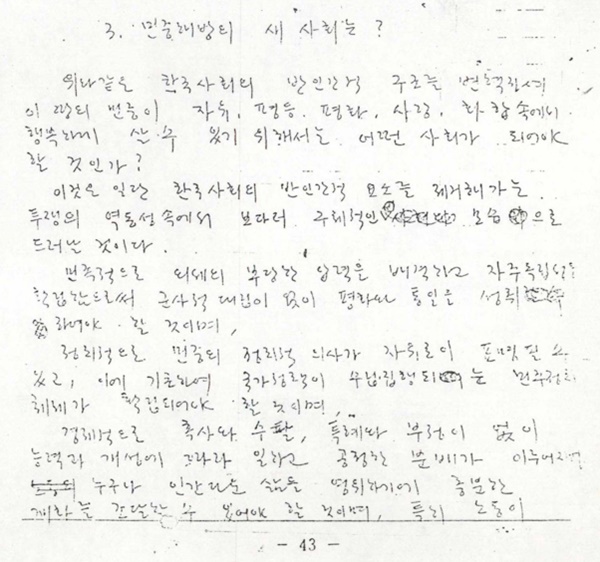 3. 민중해방의 새 사회는?
위와같은 한국사회의 반인간적 구조를 변혁집세
이 땅의 민중이 자유, 평등, 평화, 사랑, 화합속에서
행복하게 살 수 있기 위해서는 어떤 사회가 되어야
할 것인가?
이것은 일단 한국사회의 반인간적 요소를 제거해가는
투쟁의 역동성속에서 보다더 구체적인 모습으로
드러난 것이다.
민족적으로 외세의 부당한 압력을 배격하고 자주독립성을
확립함으로써 군사적 대립이 없이 평화와 통일을 성취
하여야 할 것이며,
정치적으로 민중의 정치적 의사가 자유로이 표명될 수
있고, 이에 기초하여 국가정책이 수립집행되는 민주정치
체제가 확립되어야 할 것이며,
경제적으로 혹사와 수탈, 특례와 부정이 없이
능력과 개성에 따라 일하고 공정한 분배가 이루어져
누구나 인간다운 삶을 영위하기에 충분한
재화를 조달할 수 있어야 할 것이며, 특히 노동이
- 43 -